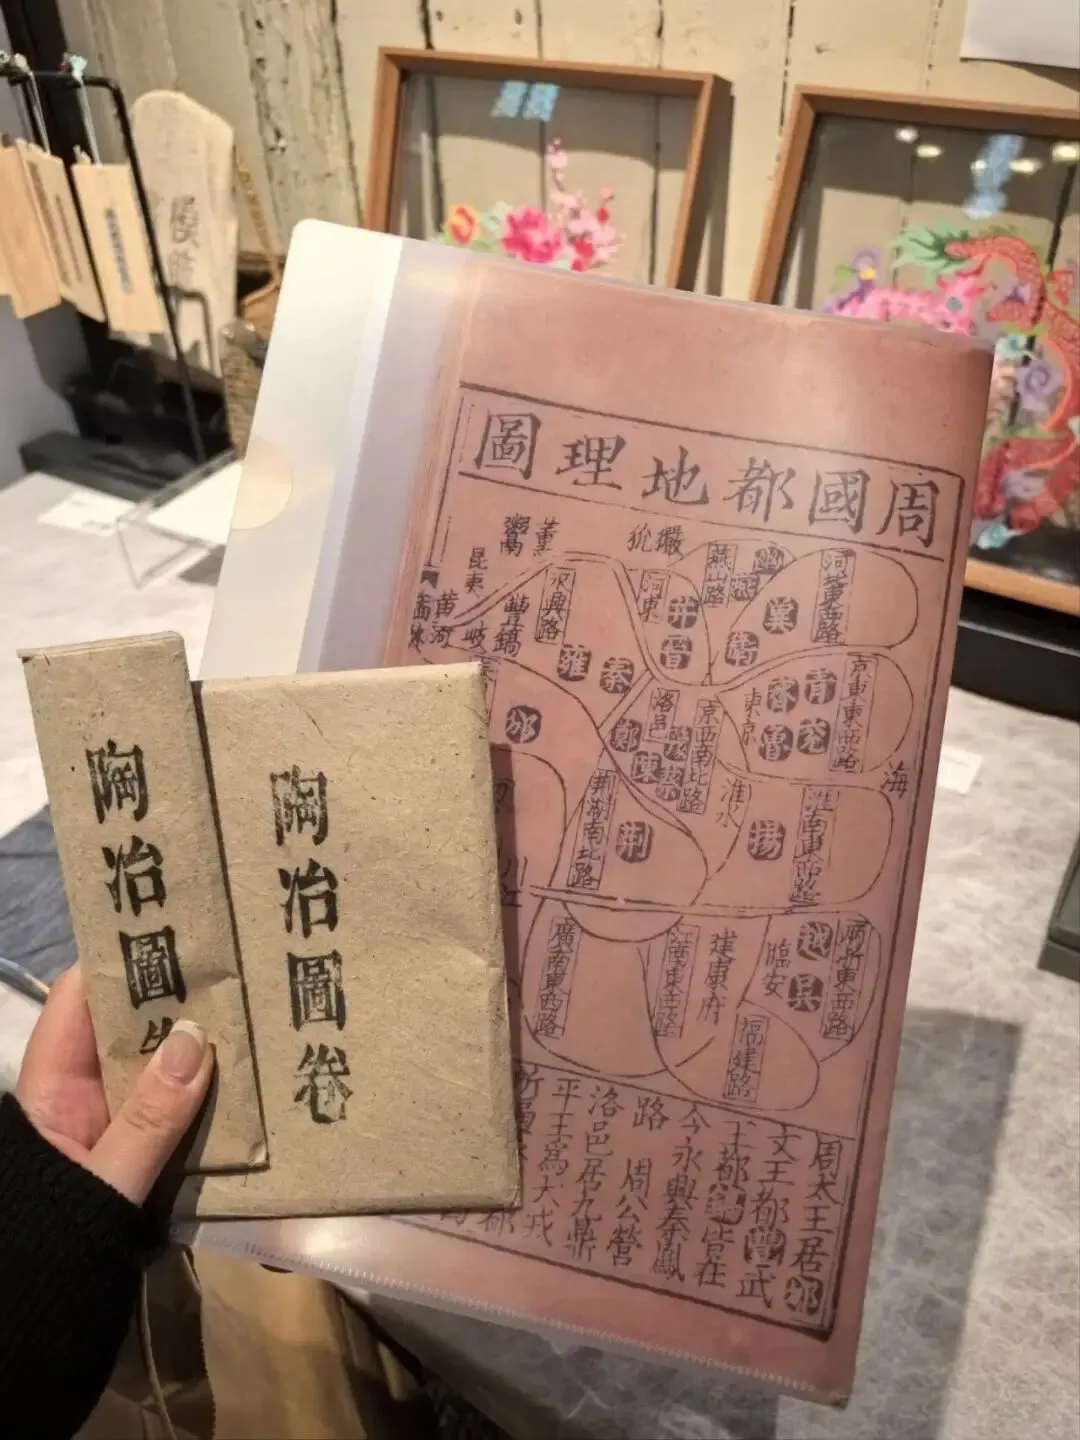 周國都地理圖
獫狁
董
鬻
昆夷
河東
永興路
燕山路
幽
燕
河
冀
衛
井
晉
豐鎬
岐
黃河
雍
秦
邠
洛邑
京西南北路
鄭
陳
蔡
豫
東京
齊
青
魯
兗
京東東西路
海
淮水
揚
淮南東西路
荆湖南北路
荆
江
廣南東西路
建康府
臨安
越
吳
兩浙東西路
福建路
周太王居邠
文王都豐武
王都鎬皆在
今永興秦鳳
路 周公營
洛邑居九鼎
平王為犬戎
都
陶冶圖卷
陶冶圖